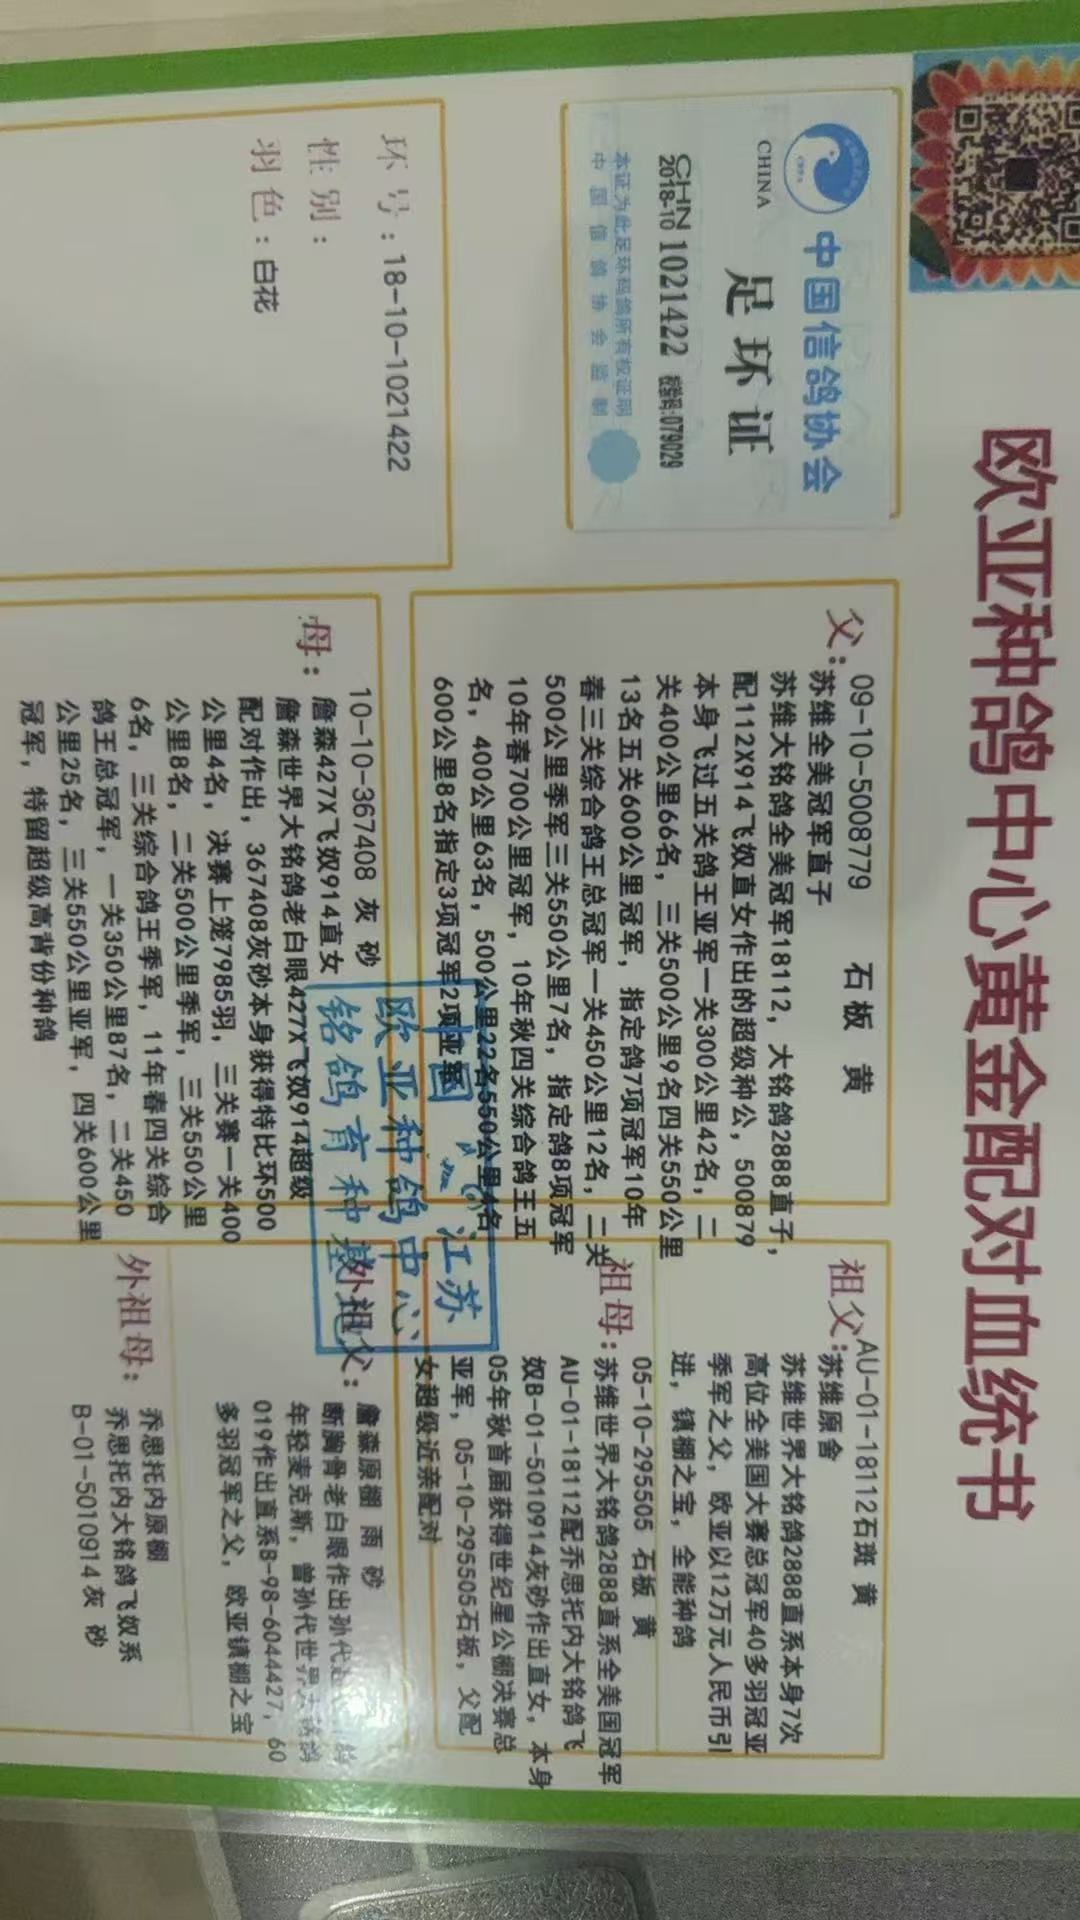 欧亚种鸽中心黄金配对血统书
中国信鸽协会
CHINA
足环证
CHN
2018-10 1021422 校验码:079029
本证为此足环码鸽所有权证明
中国信鸽协会监制
环号：18-10-1021422
性别：
羽色：白花
父：
09-10-5008779 石板 黄
苏维全美冠军直子
苏维大铭鸽全美冠军18112，大铭鸽2888直子，
配112X914飞奴直女作出的超级种公，500879
本身飞过五关鸽王亚军一关300公里42名，二
关400公里66名，三关500公里9名四关550公里
13名五关600公里冠军，指定鸽7项冠军10年
春三关综合鸽王总冠军一关450公里12名，二关
500公里季军三关550公里7名，指定鸽8项冠军
10年春700公里冠军，10年秋四关综合鸽王五
名，400公里63名，500公里22名550公里4名
600公里8名指定3项冠军2项亚军
母：
10-10-367408 灰 砂
詹森427X飞奴914直女
詹森世界大铭鸽老白眼427X飞奴914超级
配对作出，367408灰砂本身获得特比环500
公里4名，决赛上笼7985羽，三关赛一关400
公里8名，二关500公里季军，三关550公里
6名，三关综合鸽王季军，11年春四关综合
鸽王总冠军，一关350公里87名，二关450
公里25名，三关550公里亚军，四关600公里
冠军，特留超级高背份种鸽
祖父：
AU-01-18112石斑 黄
苏维原舍
苏维世界大铭鸽2888直系本身7次
高位全美国大赛总冠军40多羽冠亚
季军之父，欧亚以12万元人民币引
进，镇棚之宝，全能种鸽
祖母：
05-10-295505 石板 黄
苏维世界大铭鸽2888直系全美国冠军
AU-01-18112配乔思托内大铭鸽飞
奴B-01-5010914灰砂作出直女，本身
05年秋首届获得世纪星公棚决赛总
亚军，05-10-295505石板，父配
女超级近亲配对
外祖父：
詹森原棚 雨 砂
断胸骨老白眼作出孙代
年轻麦克斯，曾孙代世界大铭鸽
019作出直系B-98-6044427，60
多羽冠军之父，欧亚镇棚之宝
外祖母：
乔思托内原棚
乔思托内大铭鸽飞奴系
B-01-5010914灰 砂
中国 江苏
欧亚种鸽中心
铭鸽育种基地